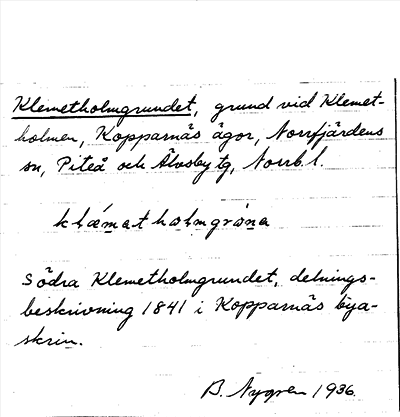 Klemetholmgrundet, grund vid Klemet-
holmen, Kopparnäs ägor, Norrfjärdens
sn, Piteå och Älvsby tg, Norrb. l.
Södra Klemetholmgrundet, delnings-
beskrivning 1841 i Kopparnäs bya-
skrin.
B. Nygren 1936.